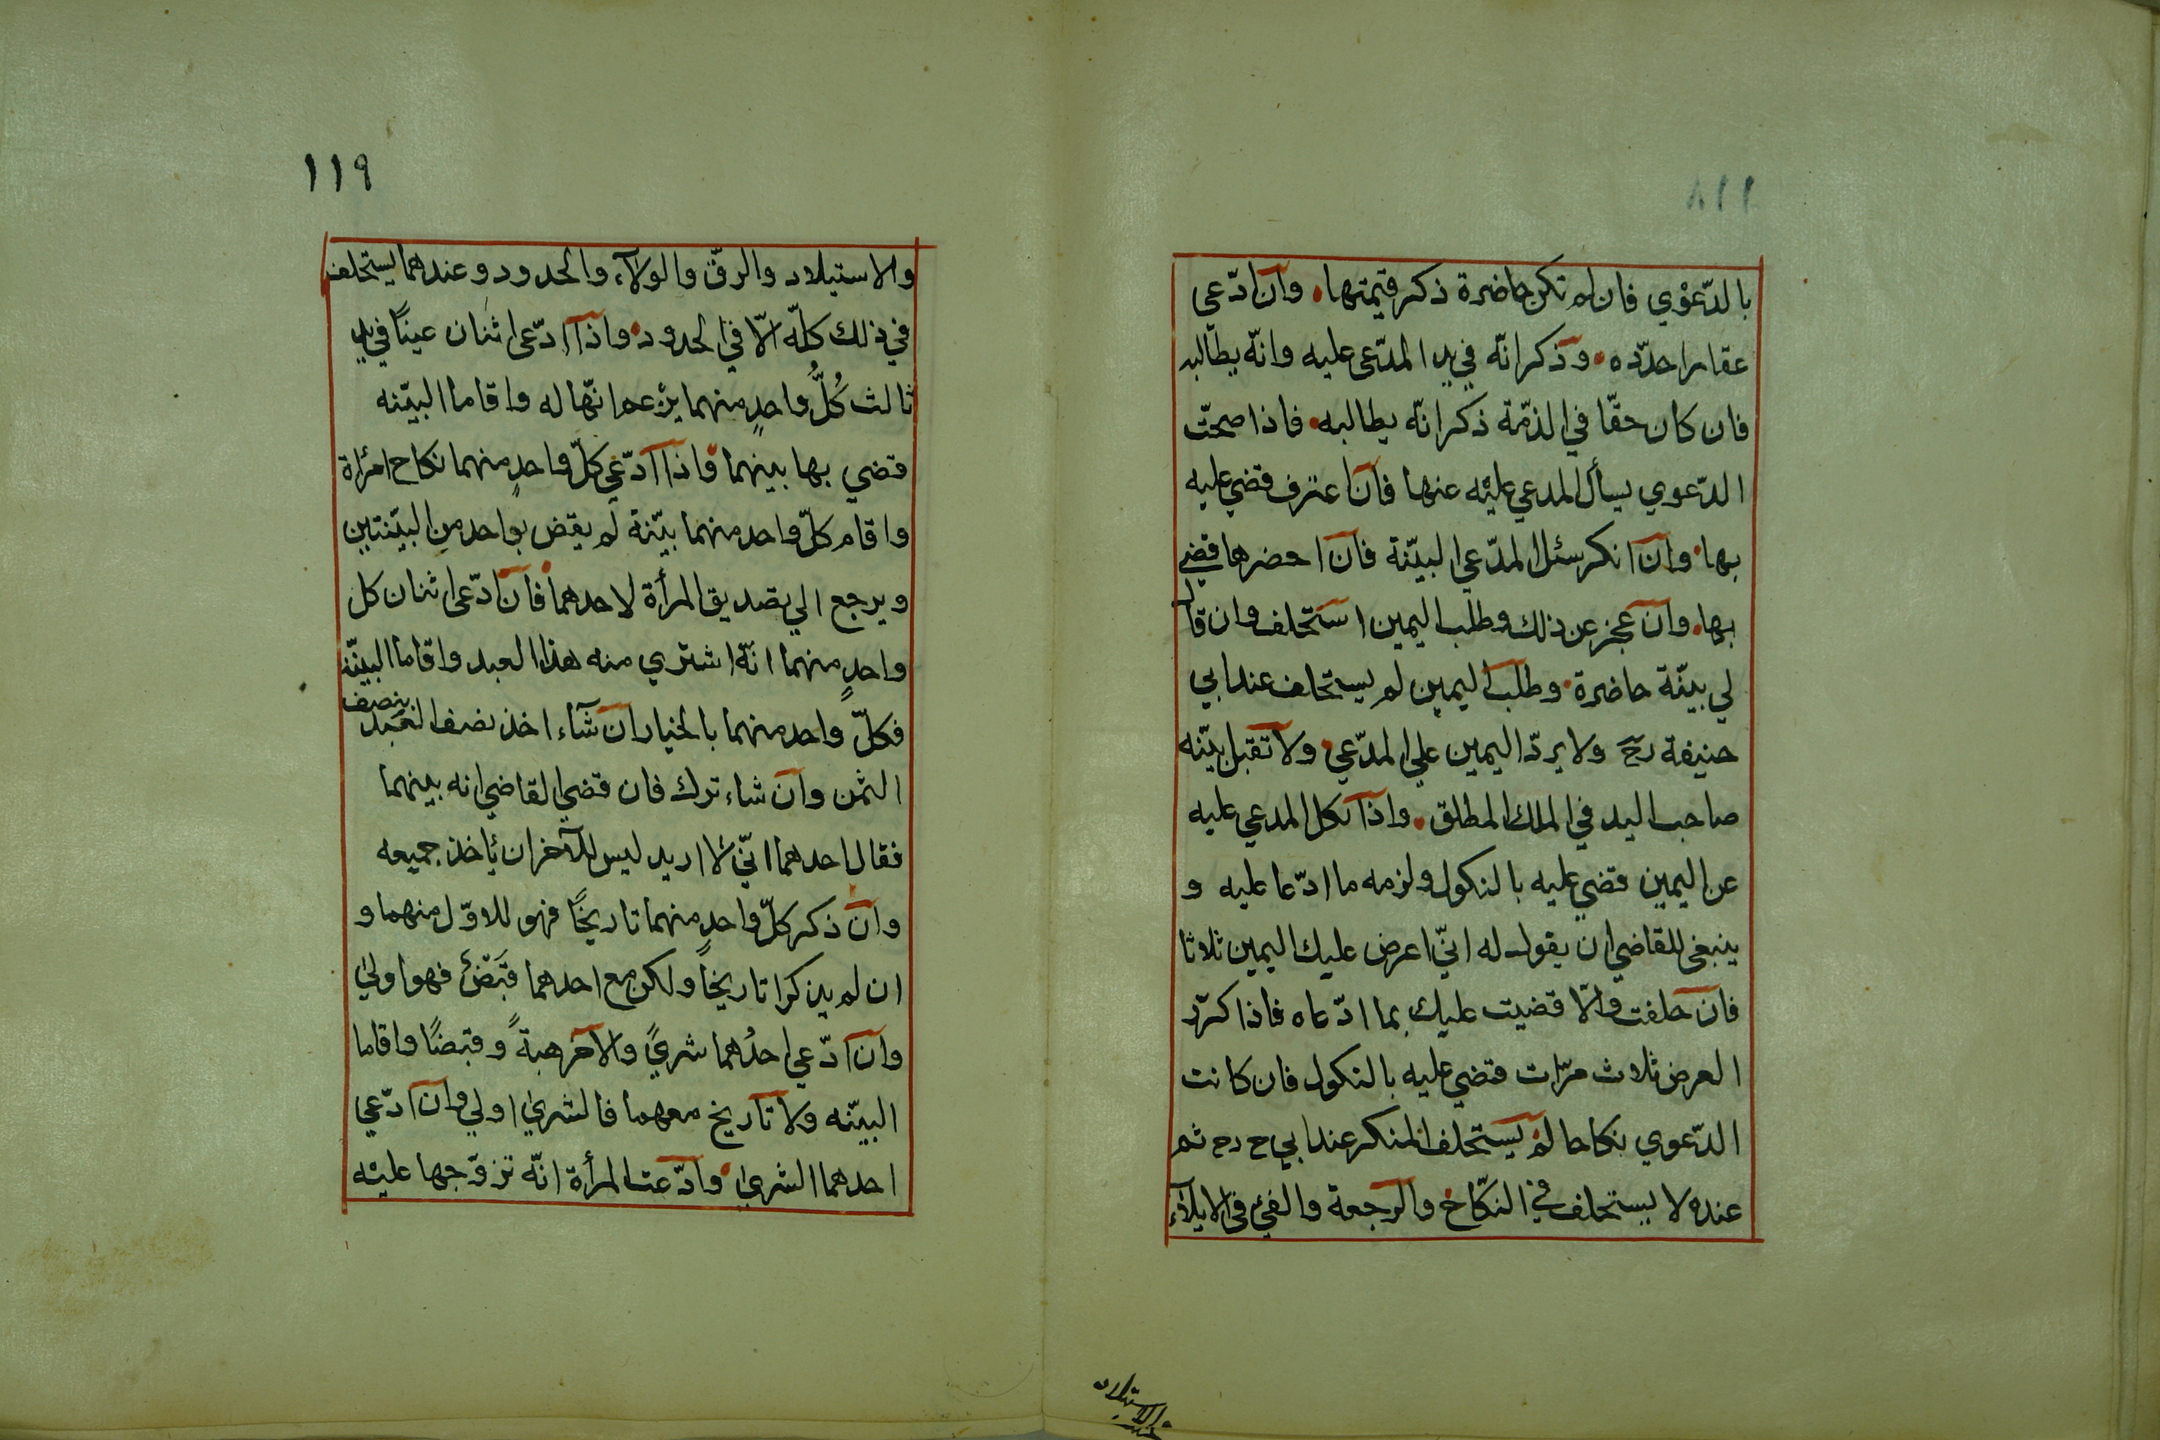 بالدّعوي فان لم تكن حاضرة ذكر قيمتها. وان ادّعى
عقارا حدّده. وذكر انّه في يد المدّعى عليه وانّه يطالبه
فان كان حقّا في الذمّة ذكر انّه يطالبه. فاذا صحّت
الدّعوي يسأل المدعي عليْه عنها فان اعترف قضي عليه
بها. وان انكر سئل المدّعي البيّنة فان احضرها قضي
بها. وان عجز عن ذلك وطلب اليمين استحلف وان قال
لي بيّنة حاضرة. وطلب اليمين لم يستحلف عند ابي
حنيفة رح ولا يردّ اليمين علي المدّعي. ولا تقبل بيّنه
صاحب اليد في الملك المطلق. واذا نكل المدعي عليه
عن اليمين قضي عليه بالنكول ولزمه ما ادّعا عليه و
ينبغى للقاضي ان يقول له انّي اعرض عليك اليمين ثلاثا
فان حلفت والّا قضيت عليك بما ادّعاه فاذا كرّر
العرض ثلاث مرّات قضي عليه بالنكول فان كانت
الدّعوي نكاحا لم يستحلف المنكر عند ابي ح رح ثم
عنده لا يستحلف في النكاح والرجعة والفئ في الايلآء
والاستيلاد
١١٩
والاستيلاد والرقّ والولآء والحدود وعندهما يستحلف
في ذلك كلّه الّا في الحدود. واذا ادّعى اثنان عينًا في يد
ثالث كُلُّ واحدٍ منهما يزْعم انّها له واقاما البيّنه
قضي بها بينهما. واذا ادّعي كلّ واحدٍ منهما نكاح امرأة
واقام كلّ واحد منهما بيّنة لم يقض بواحد من البيّنتين
ويرجع الي تصديق المرأة لاحدهما. فان ادّعى اثنان كل
واحدٍ منهما انّه اشتري منه هذا العبد واقاما البيّنة
فكلّ واحد منهما بالخيار ان شآء اخذ نصف العبد بنصف
الثمن وان شاء ترك فان قضي القاضي انه بينهما
فقال احدهما انّي لا اريد ليس للآخر ان يأخذ جميعه
وان ذكر كلّ واحدٍ منهما تاريخًا فهو للاوّل منهما و
ان لم يذكرا تاريخًا ولكن مع احدهما قَبْضٌ فهو اولي
وان ادّعي احدُهما شريً والآخر هبةً وقبضًا واقاما
البيّنه ولا تاريخ معهما فالشري اولي وان ادّعي
احدهما الشري. وادّعت المرأة انّه تزوّجها عليْه